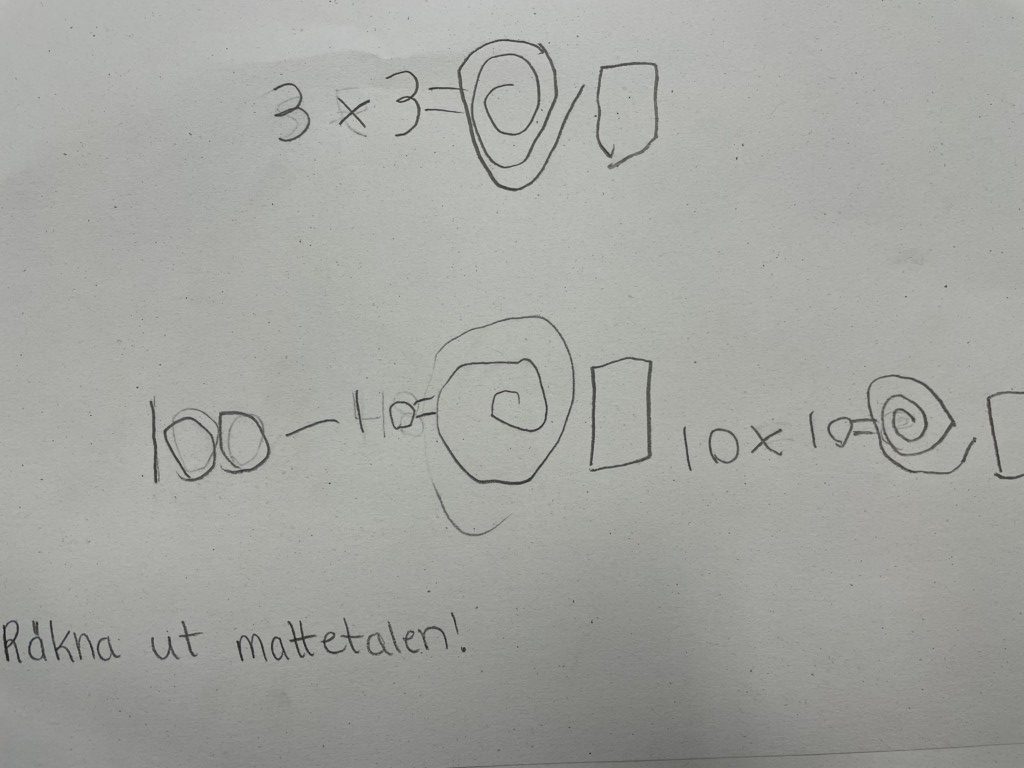 3 x 3=
100 - 40= 10 x 10=
Räkna ut mattetalen!